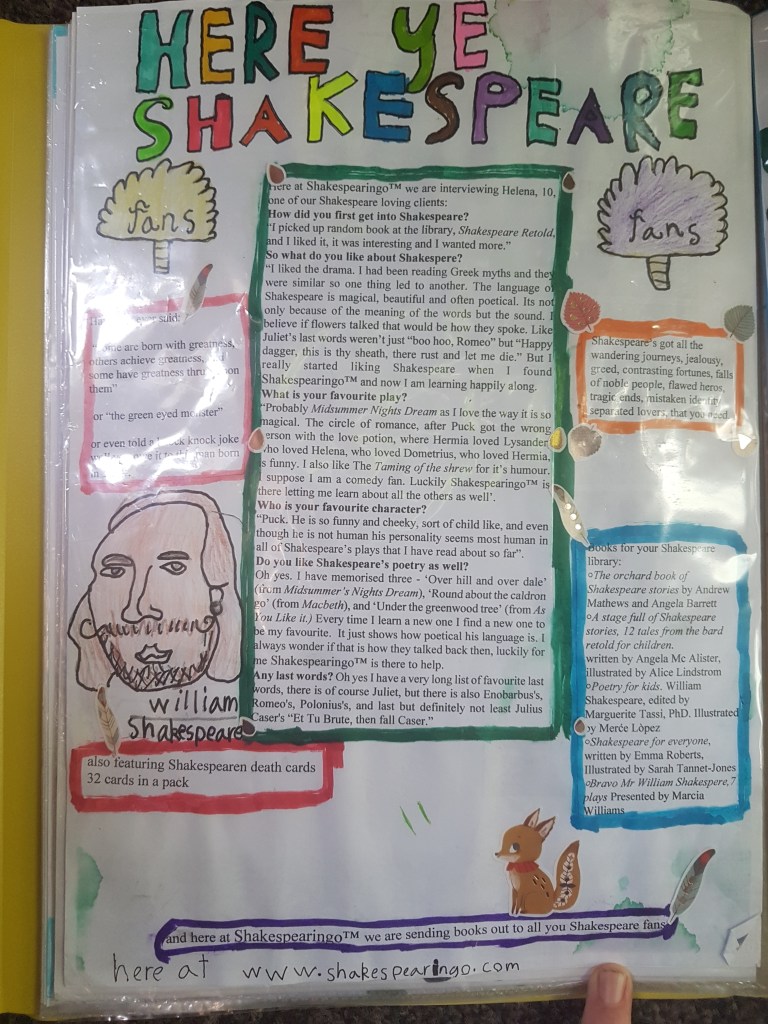 HERE YE
SHAKESPEARE
fans
fans
Here at Shakespearingo™ we are interviewing Helena, 10,
one of our Shakespeare loving clients:
How did you first get into Shakespeare?
"I picked up random book at the library, Shakespeare Retold,
and I liked it, it was interesting and I wanted more."
So what do you like about Shakespere?
"I liked the drama. I had been reading Greek myths and they
were similar so one thing led to another. The language of
Shakespeare is magical, beautiful and often poetical. Its not
only because of the meaning of the words but the sound. I
believe if flowers talked that would be how they spoke. Like
Juliet's last words weren't just "boo hoo, Romeo" but "Happy
dagger, this is thy sheath, there rust and let me die." But I
really started liking Shakespeare when I found
Shakespearingo™ and now I am learning happily along.
What is your favourite play?
"Probably Midsummer Nights Dream as I love the way it is so
magical. The circle of romance, after Puck got the wrong
person with the love potion, where Hermia loved Lysander
who loved Helena, who loved Dometrius, who loved Hermia,
is funny. I also like The Taming of the shrew for it's humour.
suppose I am a comedy fan. Luckily Shakespearingo™ is
there letting me learn about all the others as well'.
Who is your favourite character?
"Puck. He is so funny and cheeky, sort of child like, and even
though he is not human his personality seems most human in
all of Shakespeare's plays that I have read about so far".
Do you like Shakespeare's poetry as well?
Oh yes. I have memorised three - 'Over hill and over dale'
(from Midsummer's Nights Dream), 'Round about the caldron
go' (from Macbeth), and 'Under the greenwood tree' (from As
You Like it.) Every time I learn a new one I find a new one to
be my favourite. It just shows how poetical his language is. I
always wonder if that is how they talked back then, luckily for
me Shakespearingo™ is there to help.
Any last words? Oh yes I have a very long list of favourite last
words, there is of course Juliet, but there is also Enobarbus's,
Romeo's, Polonius's, and last but definitely not least Julius
Caser's "Et Tu Brute, then fall Caser."
said:
some are born with greatness,
others achieve greatness, and
some have greatness thrust upon
them"
or "the green eyed monster"
or even told a knock knock joke
man born
william
shakespeare
also featuring Shakespearen death cards
32 cards in a pack
Shakespeare's got all the
wandering journeys, jealousy,
greed, contrasting fortunes, falls
of noble people, flawed heros,
tragic ends, mistaken identity
separated lovers, that you need
Books for your Shakespeare
library:
○The orchard book of
Shakespeare stories by Andrew
Mathews and Angela Barrett
○A stage full of Shakespeare
stories, 12 tales from the bard
retold for children.
written by Angela Mc Alister,
illustrated by Alice Lindstrom
○Poetry for kids. William
Shakespeare, edited by
Marguerite Tassi, PhD. Illustrated
by Merće Lòpez
○Shakespeare for everyone,
written by Emma Roberts,
Illustrated by Sarah Tannet-Jones
○Bravo Mr William Shakespere,7
plays Presented by Marcia
Williams
and here at Shakespearingo™ we are sending books out to all you Shakespeare fans
here at www.shakespearingo.com